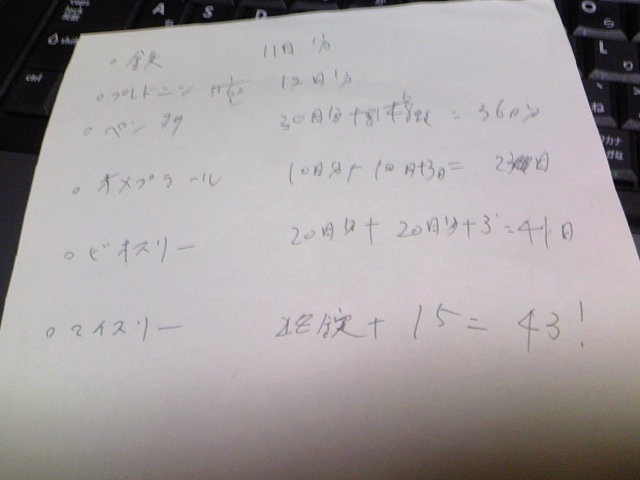 A S D
Shift
ctrl
ろ
り L
ね
カタカナ
。鉄 11日分
。プレドニン 12日分
。ペンタサ 30日分 + = 36日分
。オメプラール 10日分 + 10日+3日= 23日
。ビオスリー 20日分 + 20日分+3 =41日
。マイスリー 28錠+ 15= 43!